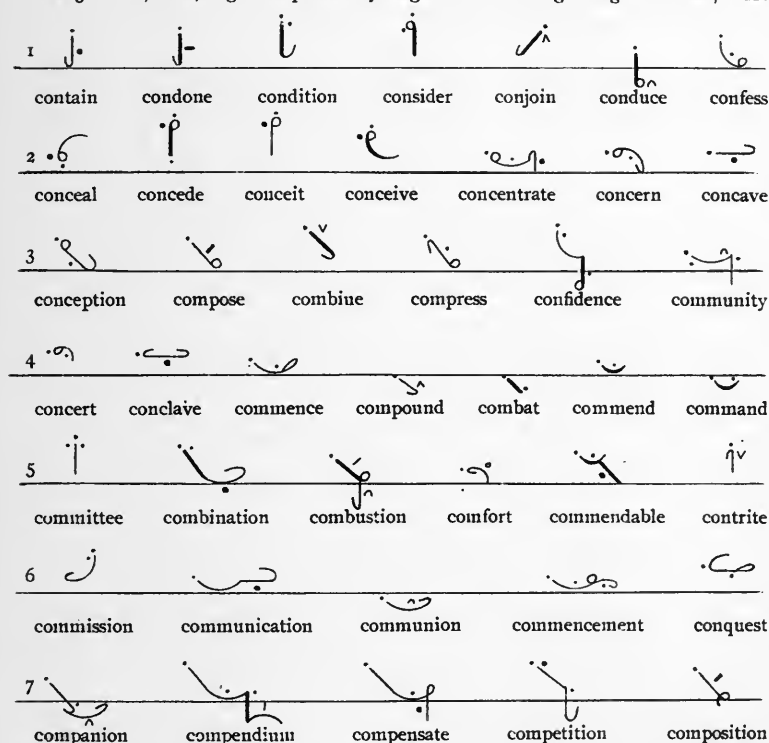 1
contain condone condition consider conjoin conduce confess
2
conceal concede conceit conceive concentrate concern concave
3
conception compose combine compress confidence community
4
concert conclave commence compound combat commend command
5
committee combination combustion comfort commendable contrite
6
commission communication communion commencement conquest
7
companion compendium compensate competition composition